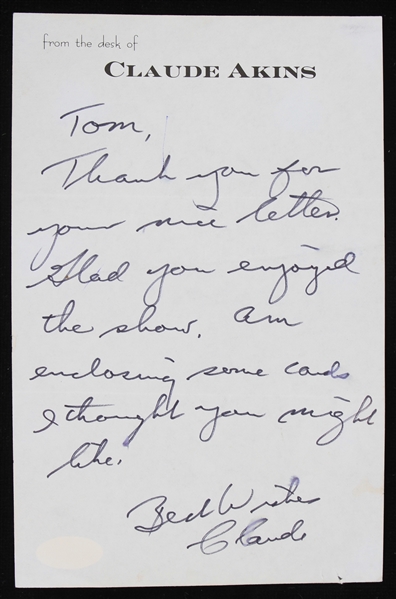 from the desk of
CLAUDE AKINS
Tom,
Thank you for
your nice letter.
Glad you enjoyed
the show. Am
enclosing some cards
I thought you might
like.
Best Wishes
Claude